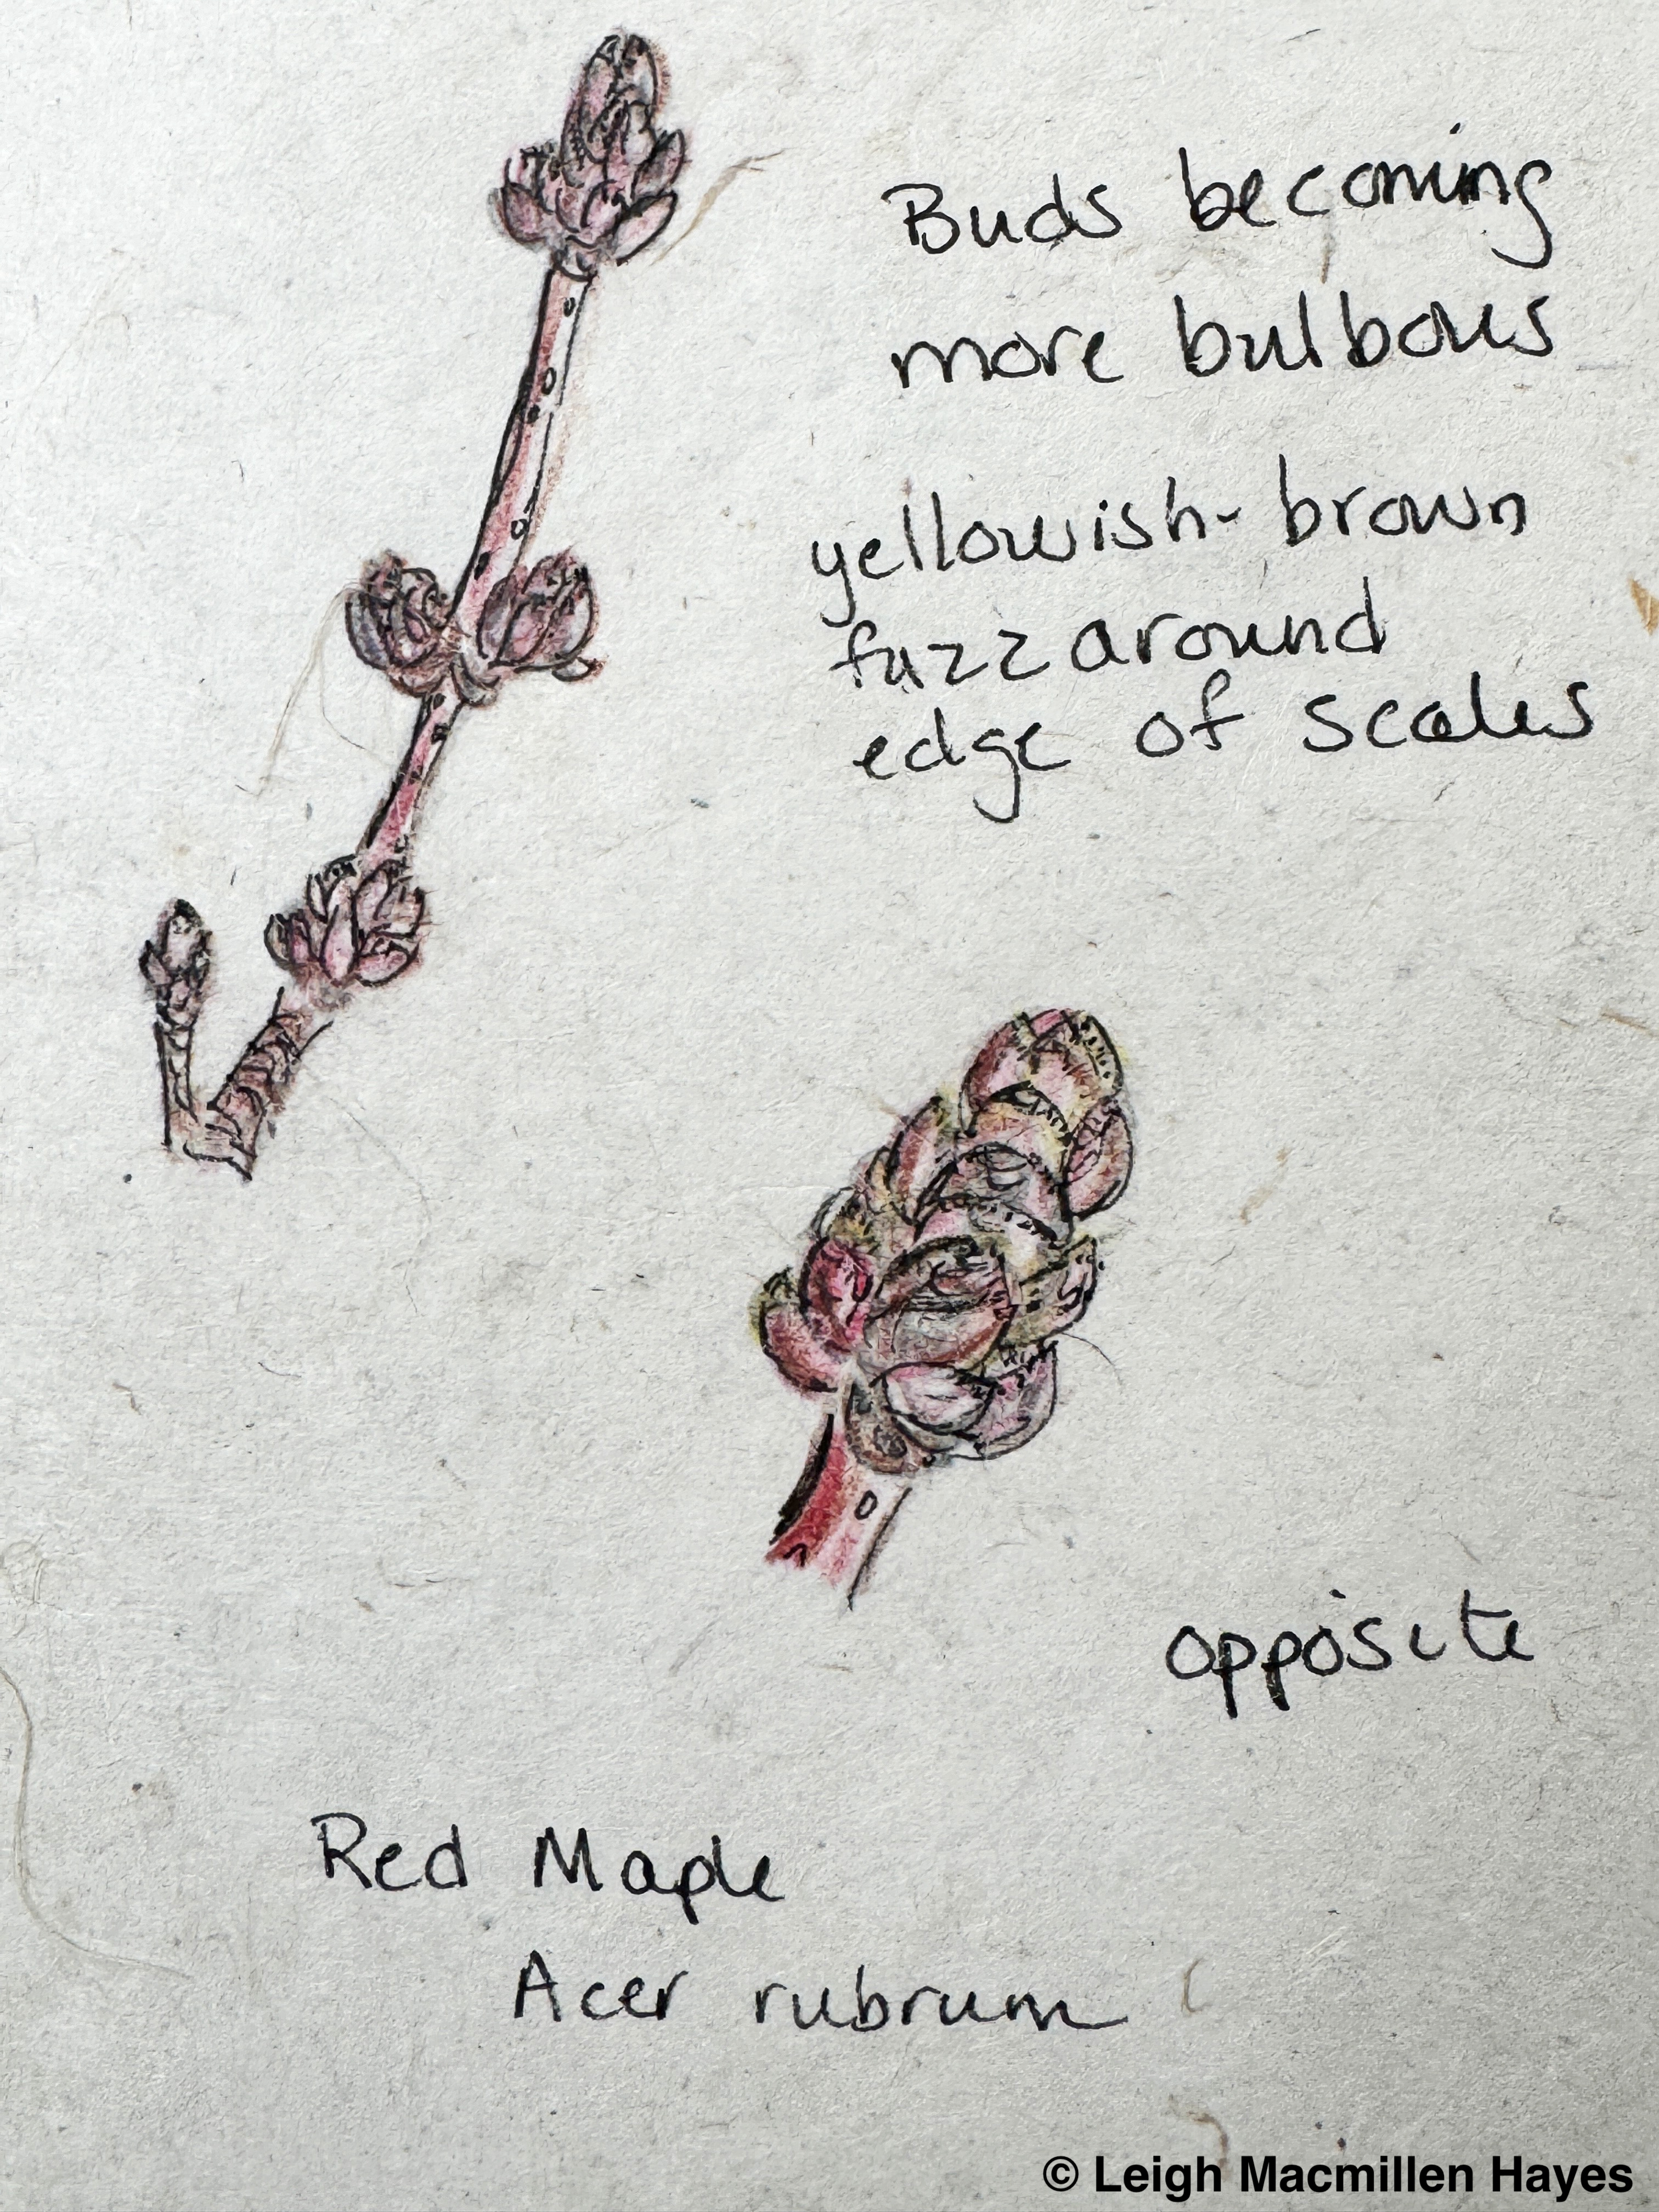 Buds becoming
more bulbous
yellowish-brown
fuzz around
edge of scales
opposite
Red Maple
Acer rubrum
© Leigh Macmillen Hayes